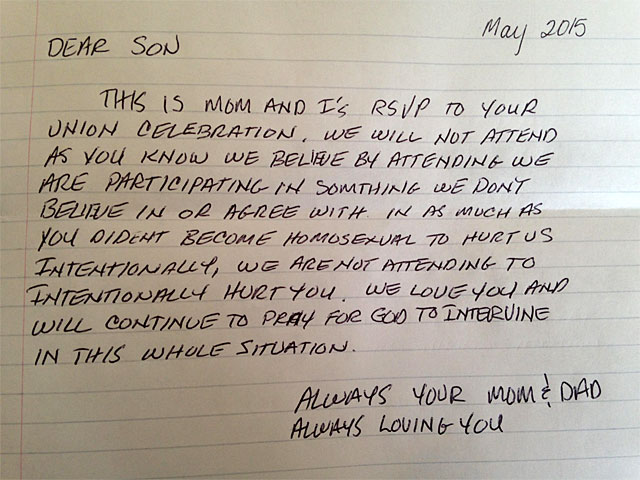 May 2015
DEAR SON
THIS IS MOM AND I'S RSVP TO YOUR
UNION CELEBRATION. WE WILL NOT ATTEND
AS YOU KNOW WE BELIEVE BY ATTENDING WE
ARE PARTICIPATING IN SOMTHING WE DON'T
BELIEVE IN OR AGREE WITH. IN AS MUCH AS
YOU DIDENT BECOME HOMOSEXUAL TO HURT US
INTENTIONALLY, WE ARE NOT ATTENDING TO
INTENTIONALLY HURT YOU. WE LOVE YOU AND
WILL CONTINUE TO PRAY FOR GOD TO INTERVINE
IN THIS WHOLE SITUATION.
ALWAYS YOUR MOM & DAD
ALWAYS LOVING YOU